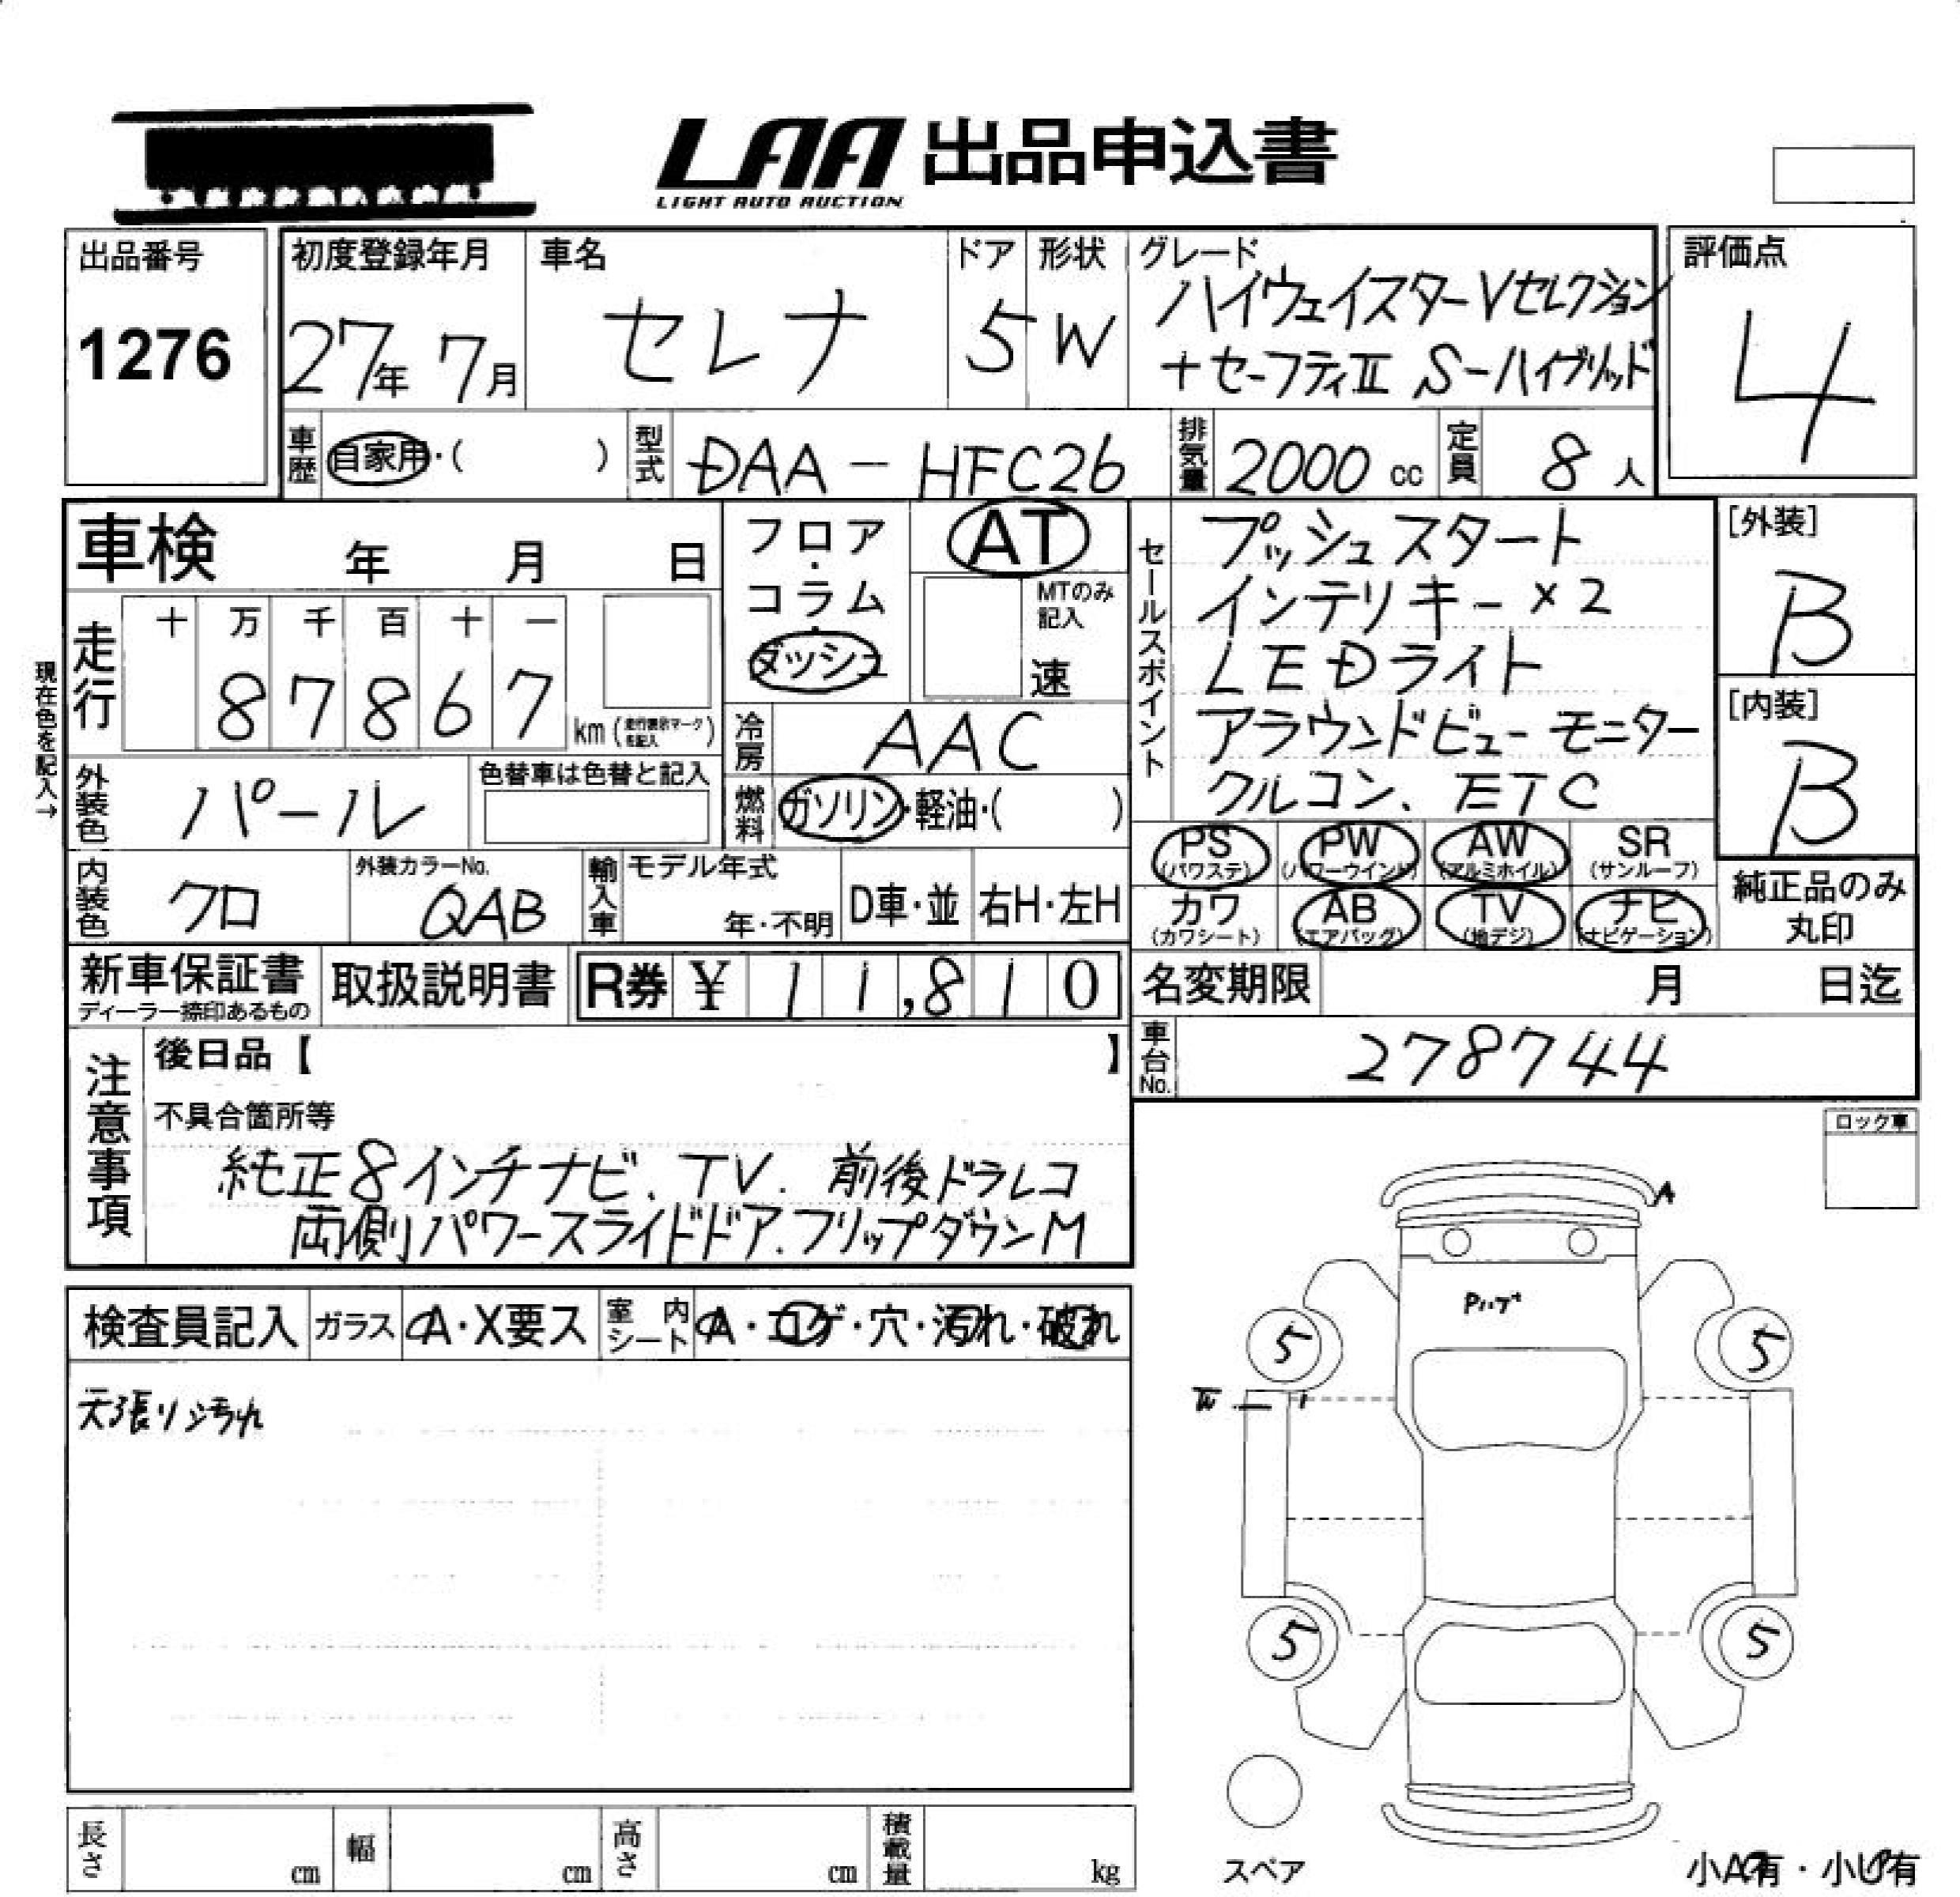 LAA 出品申込書
LIGHT AUTO AUCTION
出品番号
1276
初度登録年月
27年 7月
車名
セレナ
ドア
5
形状
W
グレード
ハイウェイスターVセレクション
+セーフティII S-ハイブリッド
評価点
4
車歴
自家用・( )
型式
DAA-HFC26
排気量
2000 cc
定員
8 人
車検 年 月 日
フロア・
コラム・
ダッシュ
AT
MTのみ
記入
速
セールスポイント
プッシュスタート
インテリキー×2
LEDライト
アラウンドビューモニター
クルコン、ETC
[外装]
B
[内装]
B
現在色を記入→
走行
十 万 千 百 十 一
8 7 8 6 7
km (走行表示マークを記入)
冷房
AAC
外装色
パール
色替車は色替と記入
燃料
ガソリン・軽油・( )
PS (パワステ)
PW (パワーウインド)
AW (アルミホイル)
SR (サンルーフ)
カワ (カワシート)
AB (エアバッグ)
TV (地デジ)
ナビ (ナビゲーション)
純正品のみ
丸印
内装色
クロ
外装カラーNo.
QAB
輸入車
モデル年式
年・不明
D車・並
右H・左H
新車保証書
ディーラー捺印あるもの
取扱説明書
R券 ¥ 11,810
名変期限 月 日迄
車台No.
278744
注意事項
後日品【 】
不具合箇所等
純正8インチナビ、TV、前後ドラレコ
両側パワースライドドア、フリップダウンM
ロック車
A
検査員記入
ガラス
A・X要ス
室内シート
A・コゲ・穴・汚れ・破れ
天張り汚れ
5
5
5
5
スペア
長さ cm
幅 cm
高さ cm
積載量 kg
小A有・小U有